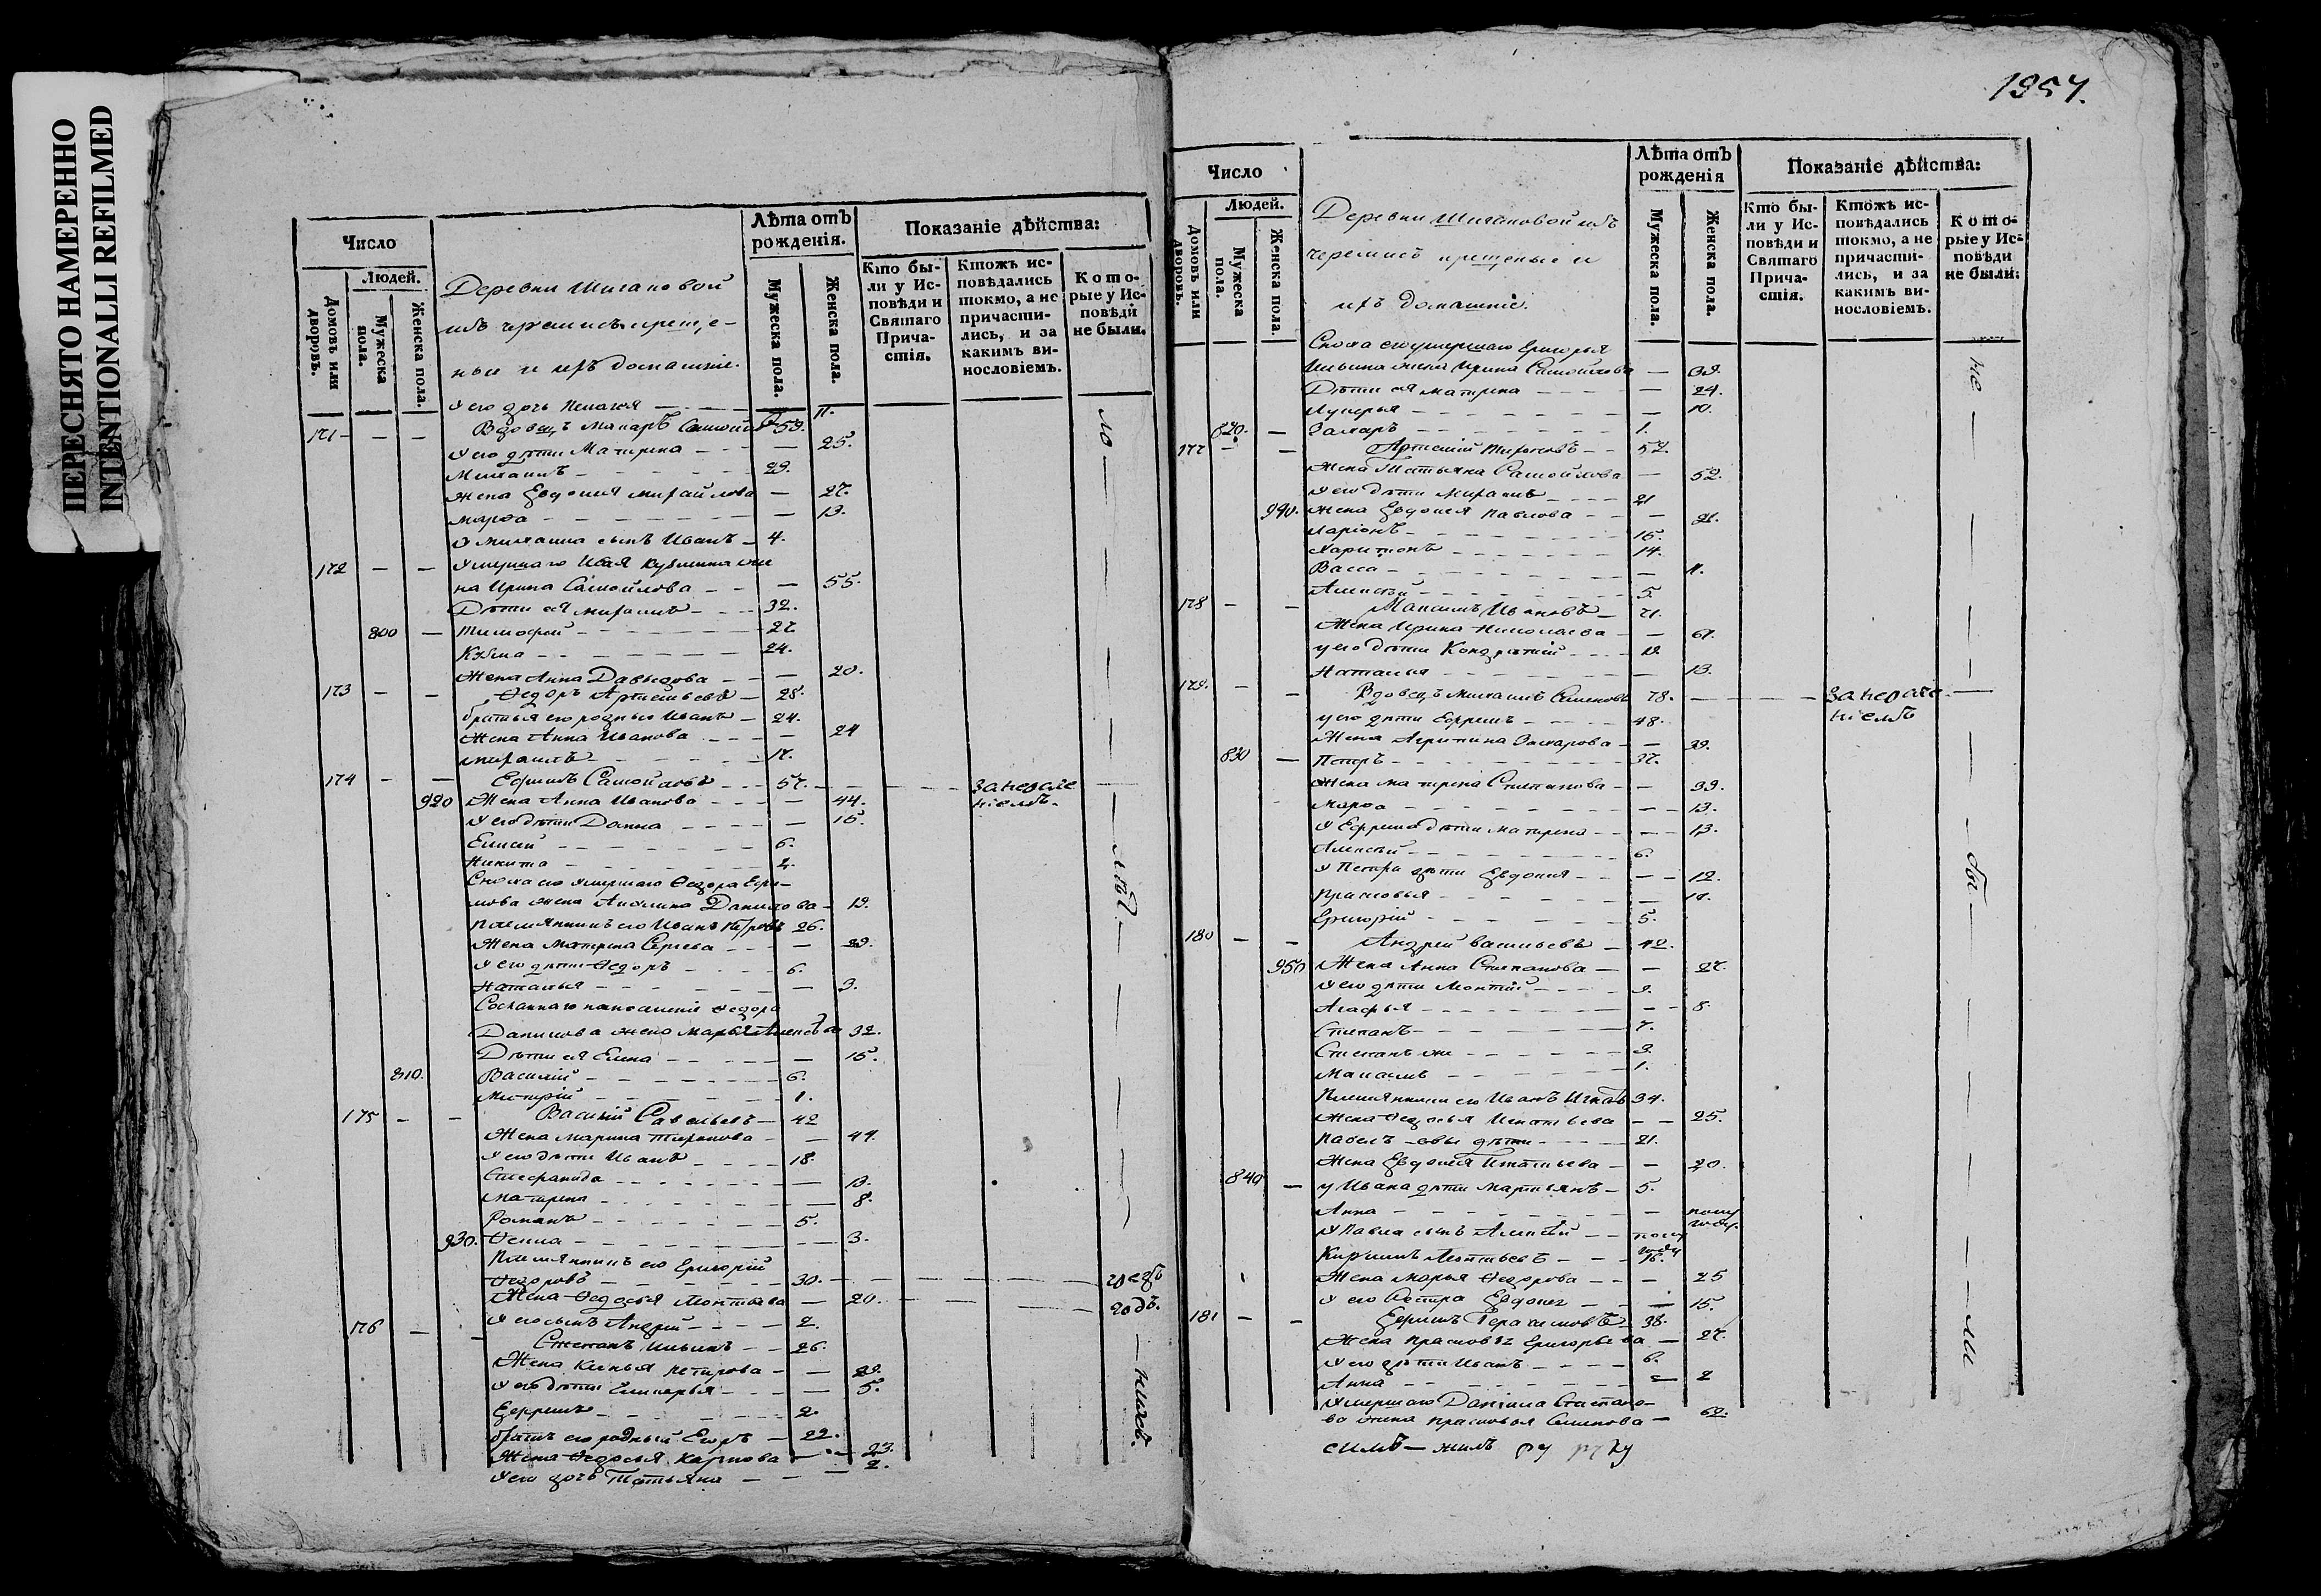 ПЕРЕСНЯТО НАМЕРЕННО
INTENTIONALLI REFILMED
Число
Людей.
Домовъ или дворовъ.
Мужеска пола.
Женска пола.
Деревни Шигановой
изъ черемисъ креще-
ные и ихъ домашніе.
Лѣта отъ рожденія.
Мужеска пола.
Женска пола.
Показаніе дѣйства:
Кто бы-
ли у Ис-
повѣди и
Святаго
Прича-
стія.
Ктожъ ис-
повѣдались
токмо, а не
причасти-
лись, и за
какимъ ви-
нословіемъ.
Кото-
рые у Ис-
повѣди
не были.
У его дочь Пелагея — 11.
171 — — Вдовецъ Макаръ Самойловъ 53.
У его дѣти Матрена — — 25.
Михаилъ — 29.
Жена Евдокия Михайлова — 27.
Марѳа — — 13.
У Михаила сынъ Иванъ — 4.
172 — — Умершаго Исая Кузмина же
на Ирина Самойлова — — 55.
Дѣти ея Михаилъ — 32.
800 — Тимофей — 27.
Кузма — 24.
Жена Анна Давыдова — — 20.
173 — — Ѳедоръ Артемьевъ — 28.
братья его родные Иванъ — 24.
Жена Анна Иванова — — 24
Михаилъ — 17.
174 — — Ефимъ Самойловъ — 57. — за нерасе
920 Жена Анна Иванова — — 44. ніемъ.
У его дѣти Домна — — 15.
Елисей — 6.
Никита — 2.
Сноха его умершаго Ѳедора Ефи-
мова жена Акулина Данилова — 19.
племянникъ его Иванъ Петровъ 26.
Жена Матрена Сергева — — 29.
У его дѣти Ѳедоръ — 6.
Наталья — — 3.
Сосланнаго на поселеніе Ѳедора
Данилова жена Марья Алексѣева 32.
Дѣти ея Елена — — 15.
810. Василій — 6.
Дмитрій — 1.
175 — — Василій Савельевъ — 42
Жена Марина — — 44.
У его дѣти Иванъ — 18.
Степанида — — 13.
Матрена — — 8.
Романъ — 5.
930. — 3.
Племянникъ его Григорій
Ѳедоровъ — 30. —
Жена Ѳедосья Леонтьева — 20. — годъ.
У его сынъ Андрей — 2.
176 — — Степанъ Ильинъ — 26.
Жена Ксенья Петрова — — 29.
У его дѣти Гликерья — — 5.
Ефремъ — 2.
братъ его родный Егоръ — 22.
Жена Ѳедосья Карпова — — 23.
У его дочь Татьяна — — 2.
1957.
Число
Людей.
Домовъ или дворовъ.
Мужеска пола.
Женска пола.
Деревни Шигановой изъ
черемисъ крещеные и
ихъ домашніе.
Лѣта отъ рожденія
Мужеска пола.
Женска пола.
Показаніе дѣйства:
Кто бы-
ли у Ис-
повѣди и
Святаго
Прича-
стія.
Ктожъ ис-
повѣдались
токмо, а не
причасти-
лись, и за
какимъ ви-
нословіемъ.
Кото-
рые у Ис-
повѣди
не были.
Сноха его умершаго Григорья
Ильина жена Ирина Самойлова — 39.
Дѣти ея Матрена — — 24.
Лукерья — — 10.
820. — Захаръ — 1.
177 — — Артемій — 57.
Жена Татьяна Самойлова — 52.
У его дѣти Михаилъ — 21
940. Жена Евдокея Павлова — — 21.
Ларіонъ — 16.
Харитонъ — 14.
Васса — — 11.
Алексѣй — 5.
178 — — Максимъ Ивановъ — 71.
Жена Ирина Николаева — — 67.
у его дѣти Кондратій — 19.
Наталья — — 13.
179. — — Вдовецъ Михаилъ Семеновъ 78. — за нерасе
у его дѣти Ефремъ — 48. ніемъ
Жена Агрипина Захарова — — 39.
830 — Петръ — 37.
Жена Матрена Степанова — — 39.
Марѳа — — 13.
У Ефрема дѣти Матрена — — 13.
Алексѣй — 6.
У Петра дѣти Евдокия — — 12.
Прасковья — — 11.
Григорій — 5.
180 — — Андрей Васильевъ — 42.
950 Жена Анна Степанова — — 27.
У его дѣти Леонтій — 9.
Агафья — — 8.
Степанъ — 7.
Степанъ же — 3.
Максимъ — 1.
Племянники его Иванъ 34.
Жена Ѳедосья Игнатьева — — 25.
Павелъ — дѣти — 21.
Жена Евдокея Игнатьева — — 20.
840 — у Ивана дѣти Мартьянъ — 5.
Анна — — полу
годъ.
У Павла сынъ Алексѣй — полу
году
Кирилъ Леонтьевъ — 18.
Жена Марья Ѳедорова — — 25
У его сестра Евдокея — — 15.
181 — — Ефимъ Герасимовъ — 38.
Жена Прасковья Григорьева — 27.
У его дѣти Иванъ — 6.
Анна — — 2
Умершаго Данила Степано-
ва жена Прасковья Семенова — 62.
не — бы — ли